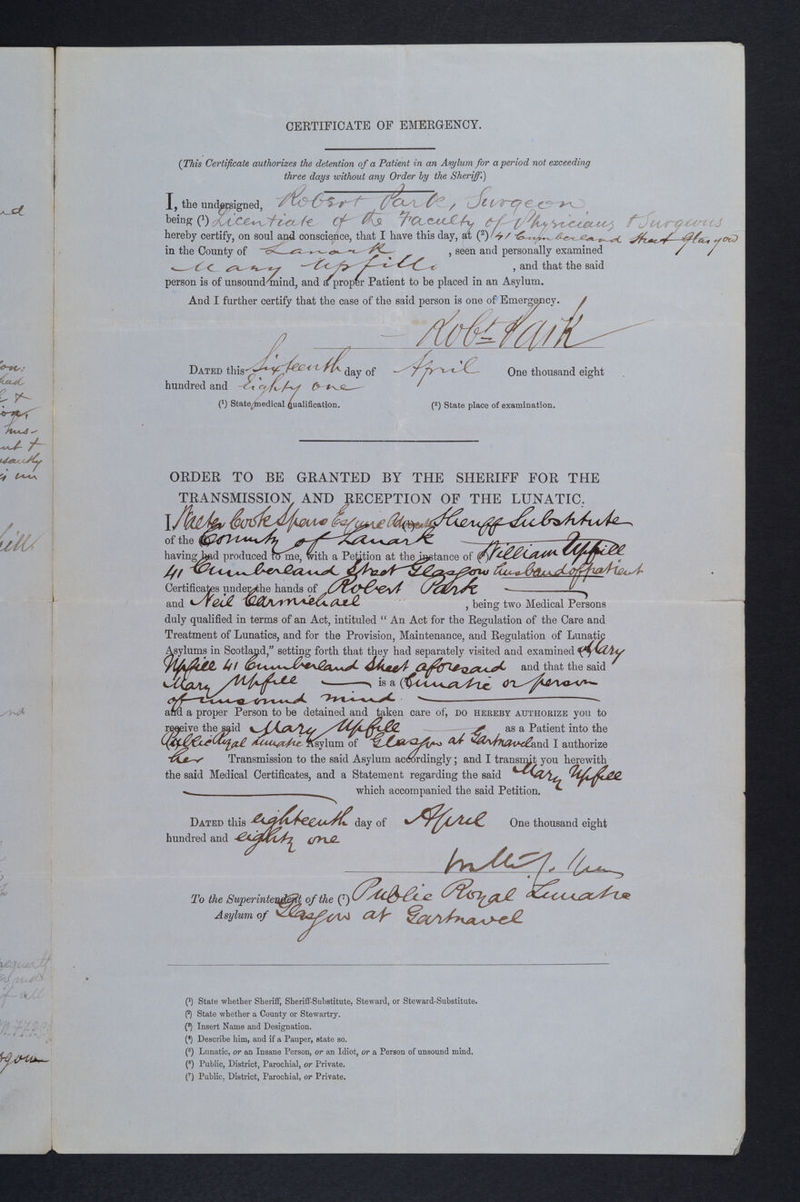 CERTIFICATE OF EMERGENCY.
(This Certificate authorizes the detention of a Patient in an Asylum for a period not exceeding
three days without any Order by the Sheriff.)
I, the undersigned, Robert Park, Surgeon
being (1) Licentiate of the Faculty of Physicians & Surgeons
hereby certify, on soul and conscience, that I have this day, at (2) 41 Cumberland Street Glasgow
in the County of Lanark , seen and personally examined
Mary Upfill , and that the said
person is of unsound mind, and a proper Patient to be placed in an Asylum.
And I further certify that the case of the said person is one of Emergency.
Robt Park
DATED this Sixteenth day of April One thousand eight
hundred and Eighty One
(1) State medical qualification. (2) State place of examination.
ORDER TO BE GRANTED BY THE SHERIFF FOR THE
TRANSMISSION AND RECEPTION OF THE LUNATIC.
I Walter Cook Spens Esquire Advocate Sheriff Substitute
of the County of Lanark
having had produced to me, with a Petition at the instance of William Upfill
41 Cumberland Street Glasgow husband of patient
Certificates under the hands of Robert Park
and Neil Carmichael , being two Medical Persons
duly qualified in terms of an Act, intituled " An Act for the Regulation of the Care and
Treatment of Lunatics, and for the Provision, Maintenance, and Regulation of Lunatic
Asylums in Scotland," setting forth that they had separately visited and examined Mary
Upfill 41 Cumberland Street aforesaid and that the said
Mary Upfill is a Lunatic or person
of unsound mind
and a proper Person to be detained and taken care of, DO HEREBY AUTHORIZE you to
receive the said Mary Upfill as a Patient into the
Public Royal Lunatic Asylum of Glasgow at Gartnavel and I authorize
her Transmission to the said Asylum accordingly; and I transmit you herewith
the said Medical Certificates, and a Statement regarding the said Mary Upfill
which accompanied the said Petition.
DATED this eighteenth day of April One thousand eight
hundred and eighty one
To the Superintendent of the (7) Public Royal Lunatic
Asylum of Glasgow at Gartnavel
(1) State whether Sheriff, Sheriff-Substitute, Steward, or Steward-Substitute.
(2) State whether a County or Stewartry.
(3) Insert Name and Designation.
(4) Describe him, and if a Pauper, state so.
(5) Lunatic, or an Insane Person, or an Idiot, or a Person of unsound mind.
(6) Public, District, Parochial, or Private.
(7) Public, District, Parochial, or Private.